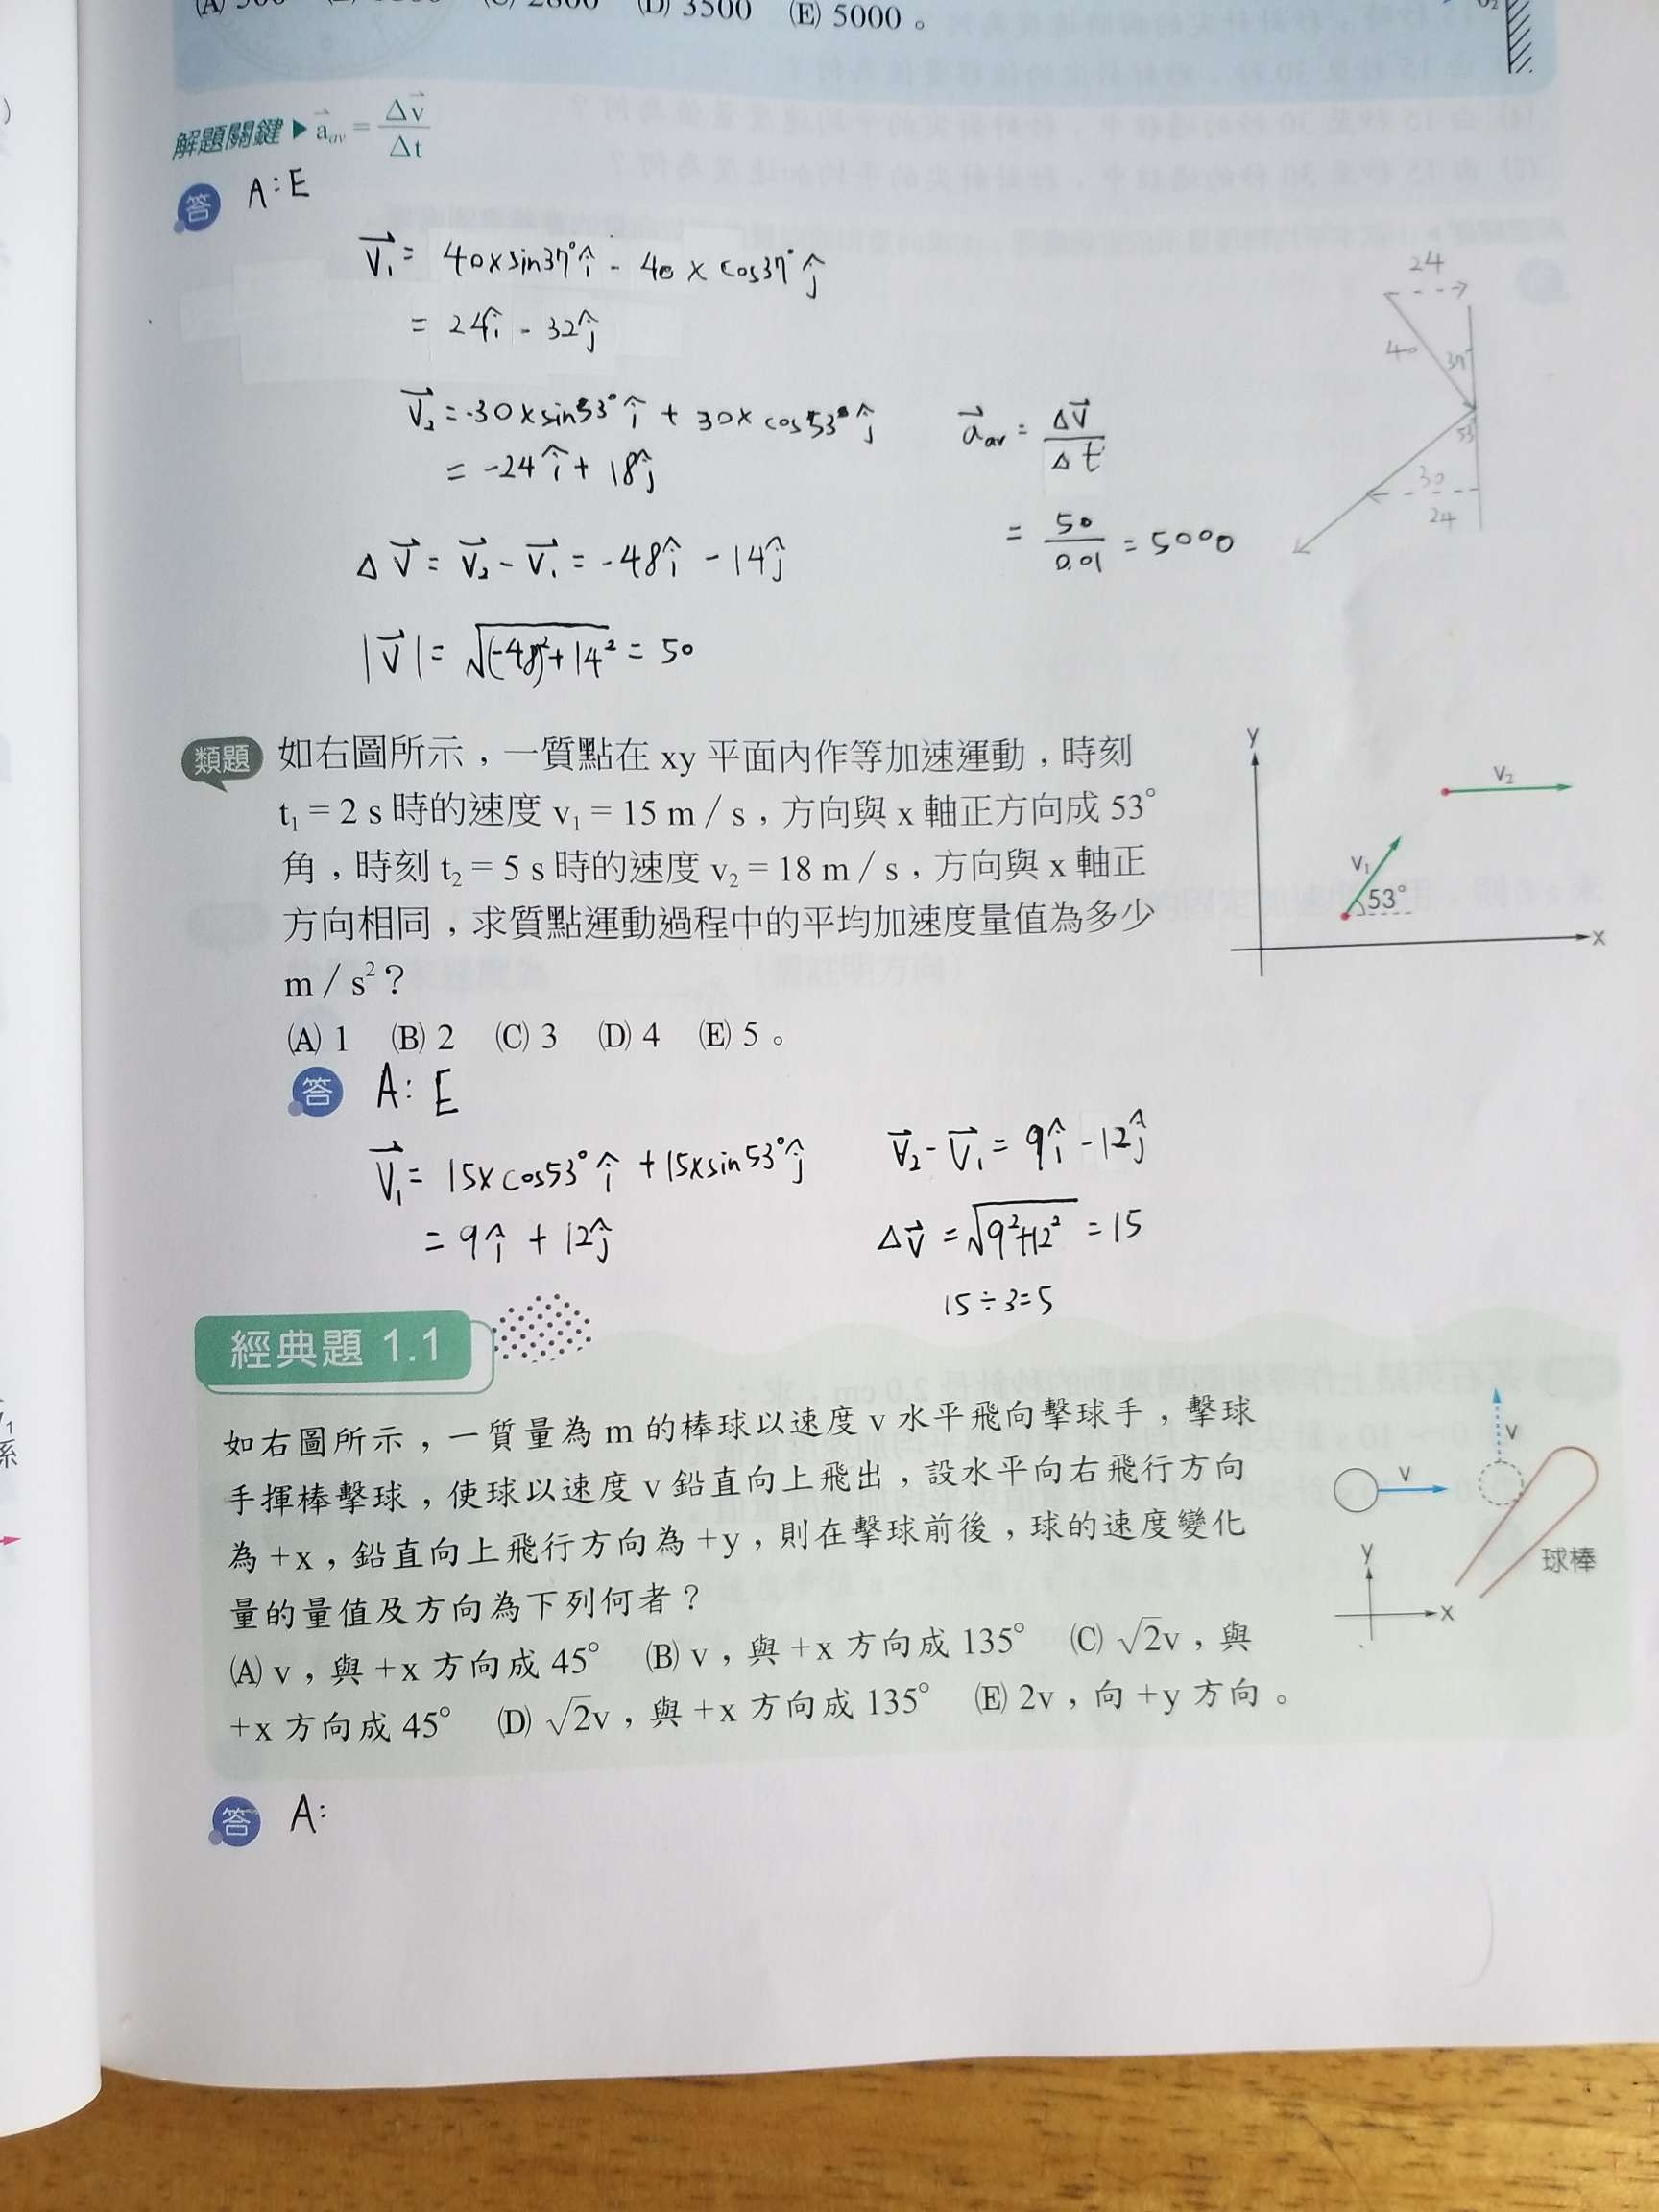 (D) 3500 (E) 5000。
解題關鍵▶ a⃗av = Δv⃗ / Δt
答 A:E
V⃗₁ = 40×sin37°î - 40×cos37°ĵ
= 24î - 32ĵ
V⃗₂ = -30×sin53°î + 30×cos53°ĵ
= -24î + 18ĵ
a⃗av = ΔV⃗ / Δt
= 50 / 0.01 = 5000
ΔV⃗ = V⃗₂ - V⃗₁ = -48î - 14ĵ
|V⃗| = √((-48)²+14²) = 50
24
40
37°
53°
30
24
類題 如右圖所示，一質點在 xy 平面內作等加速運動，時刻
t₁ = 2 s 時的速度 v₁ = 15 m/s，方向與 x 軸正方向成 53°
角，時刻 t₂ = 5 s 時的速度 v₂ = 18 m/s，方向與 x 軸正
方向相同，求質點運動過程中的平均加速度量值為多少
m/s²？
(A) 1 (B) 2 (C) 3 (D) 4 (E) 5。
y
v₂
v₁
53°
x
答 A: E
V⃗₁ = 15×cos53°î + 15×sin53°ĵ
= 9î + 12ĵ
V⃗₂ - V⃗₁ = 9î - 12ĵ
ΔV⃗ = √(9²+12²) = 15
15÷3=5
經典題 1.1
如右圖所示，一質量為 m 的棒球以速度 v 水平飛向擊球手，擊球
手揮棒擊球，使球以速度 v 鉛直向上飛出，設水平向右飛行方向
為 +x，鉛直向上飛行方向為 +y，則在擊球前後，球的速度變化
量的量值及方向為下列何者？
(A) v，與 +x 方向成 45° (B) v，與 +x 方向成 135° (C) √2v，與
+x 方向成 45° (D) √2v，與 +x 方向成 135° (E) 2v，向 +y 方向。
v
v
球棒
y
x
答 A: